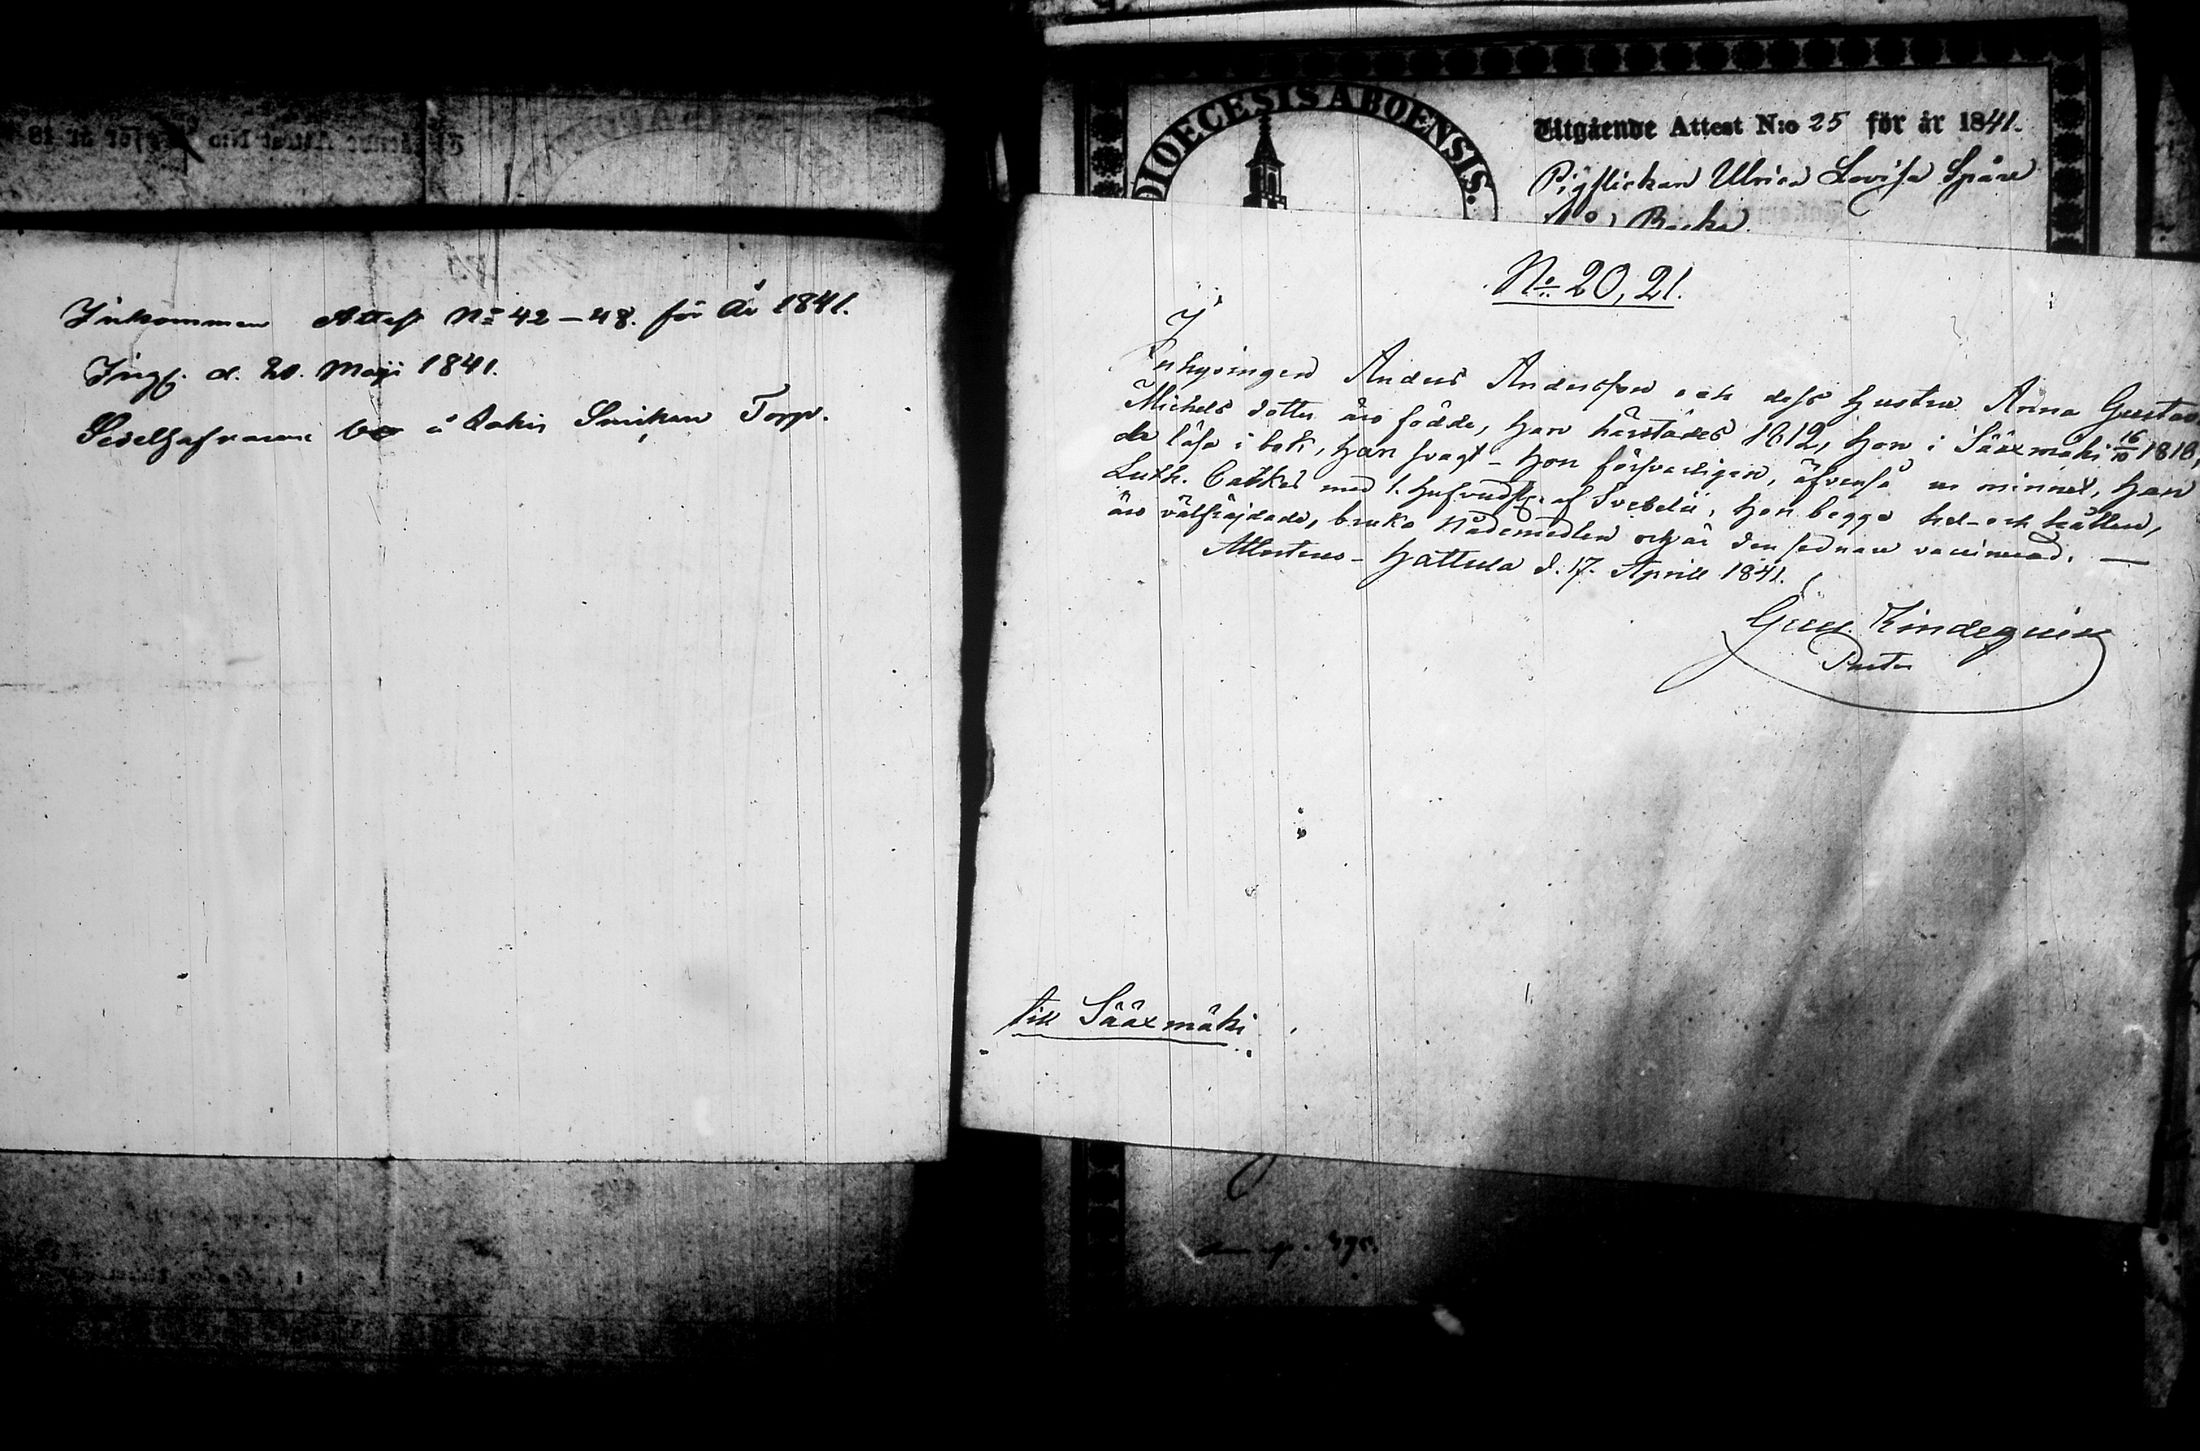 Inkommen Attest No 42–48. för År 1841.
Ingf. d. 20. Maji 1841.
Sedelhafvarne bo å Torp.
DIOECESIS ABOENSIS.
Utgående Attest N:o 25 för år 1841.
Pigflickan Ulrica Lovisa Spåre
No 20, 21.
Inhysingen Anders Andersson och dess hustru Anna Gustava
Michels dotter äro födde, han härstädes 1812, hon i Sääxmäki 16/10 1818,
de läsa i bok, han svagt – hon försvarligen, äfvenså ur minnet, han
Luth. Cathes med 1. hufvudst. af Svebelii, hon begge hel- och hållen,
äro välfräjdade, bruka Nådemedlen och är den sednare vaccinerad. —
Attesteras – Hattula d. 17. Aprill 1841.
Pastor
till Sääxmäki